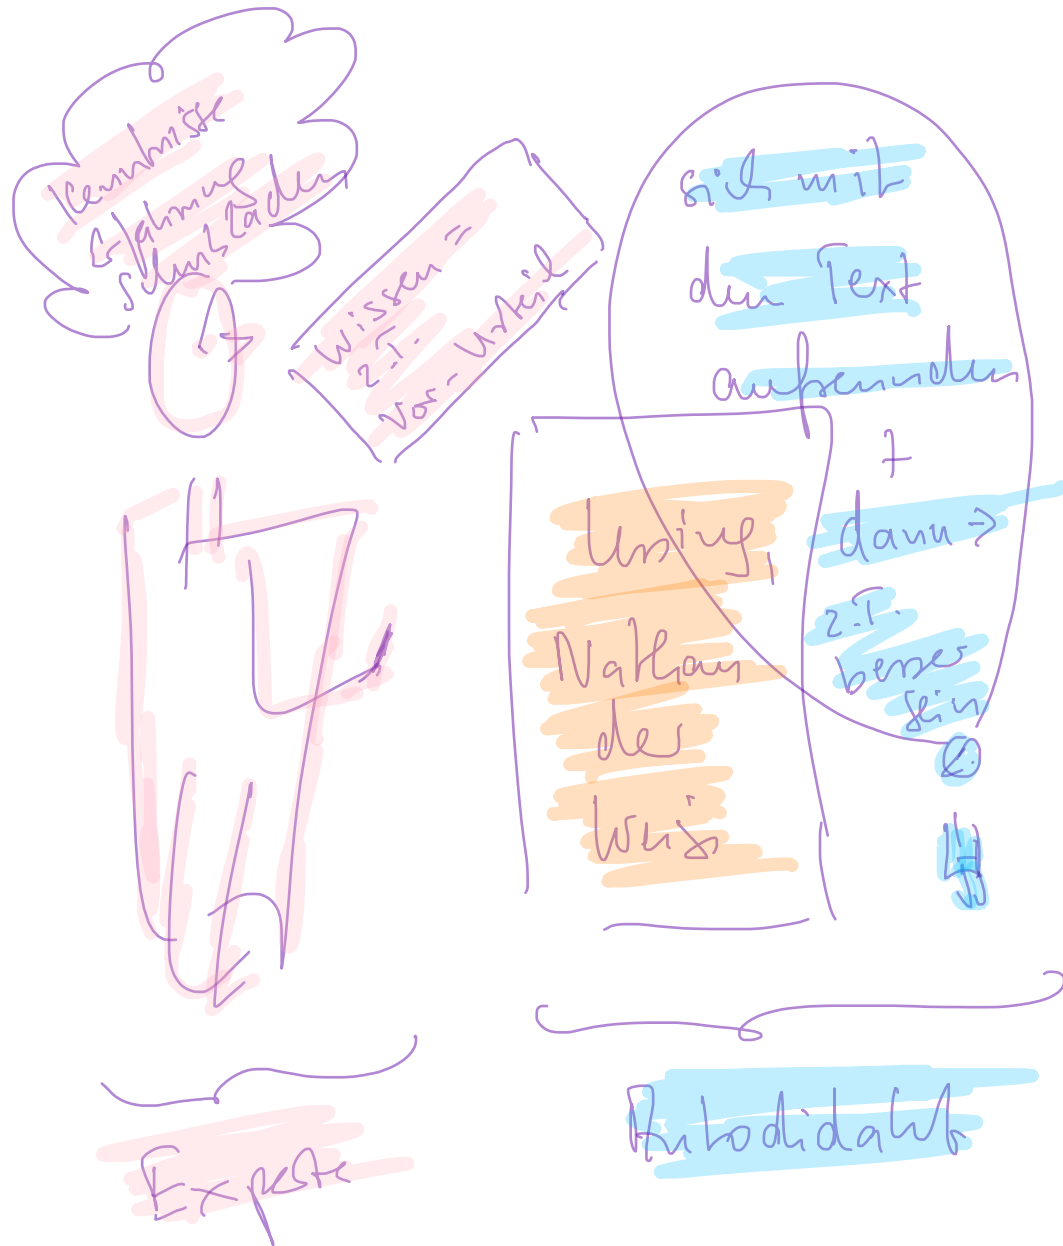 Kenntnisse
Erfahrung
Schubladen
Wissen =
z.T.
Vor-Urteil
Experte
sich mit
dem Text
anfreunden
+
dann →
z.T.
besser
sein
Lessing,
Nathan
der
Weise
Autodidakt